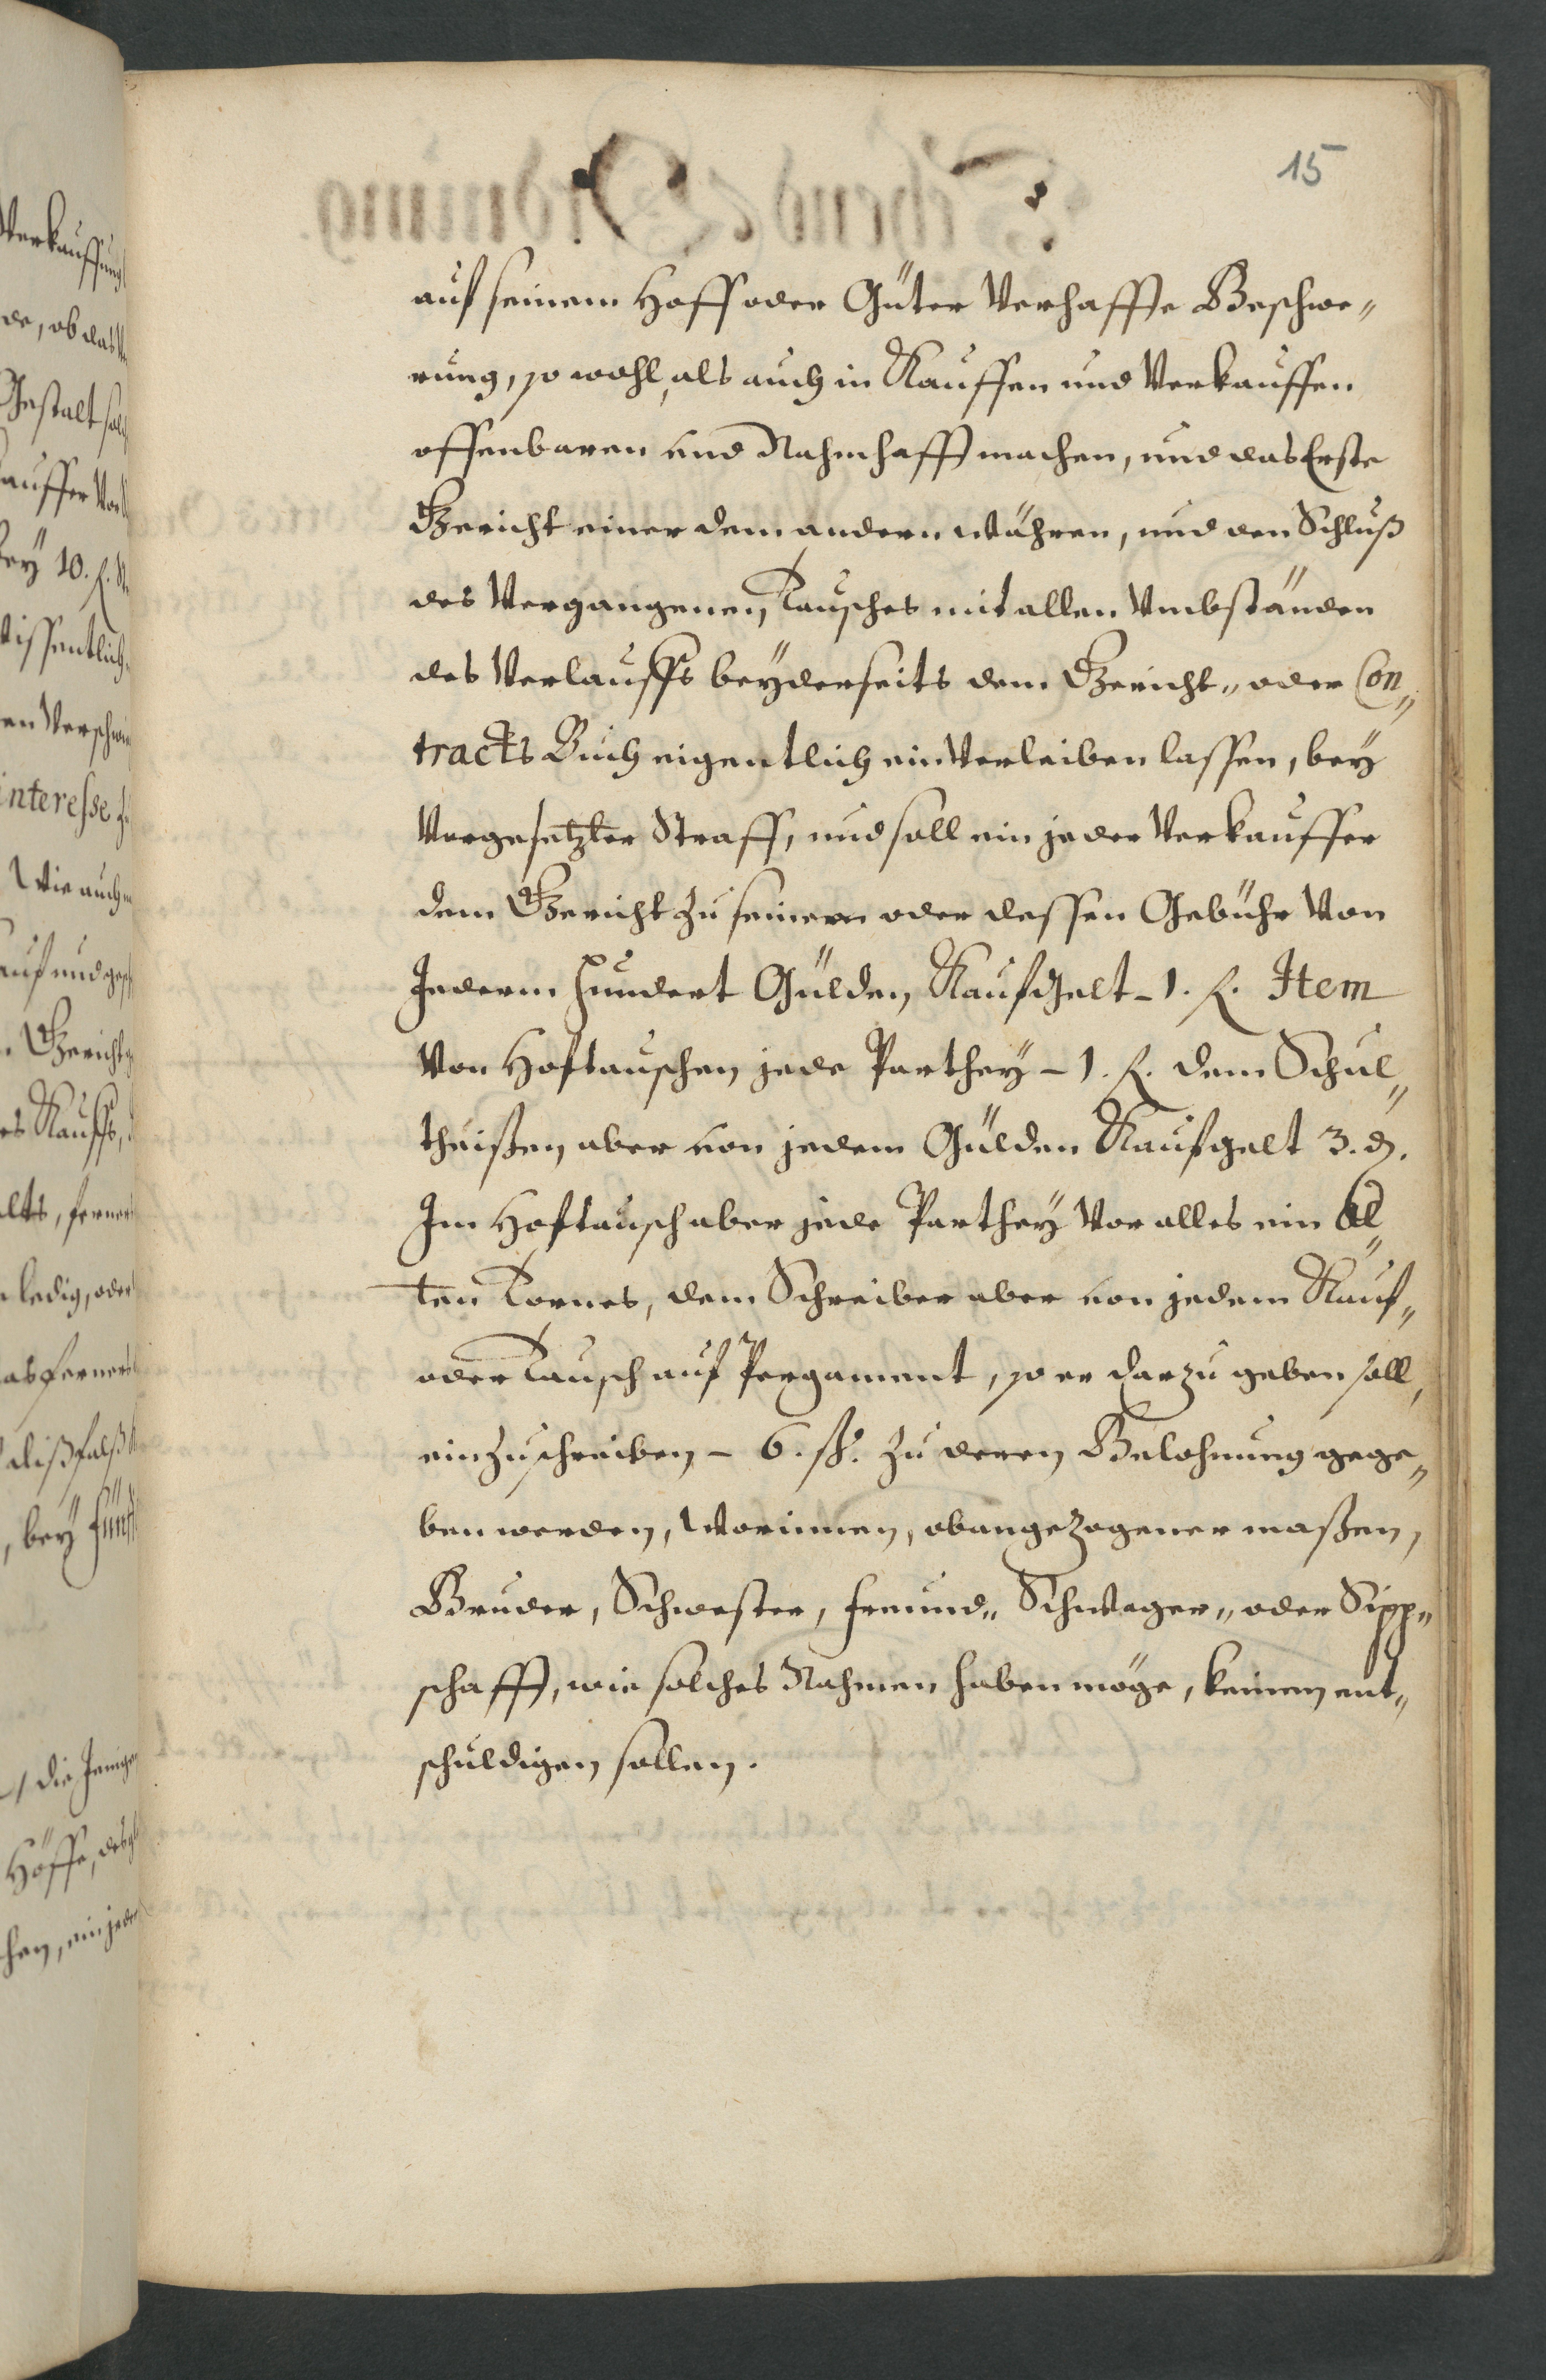 15
auf seinem Hoff oder Güter Verhaffte Beschwe„
rung, so wohl, als auch in Kauffen und Verkauffen
offenbaren und Nahmhafft machen, und das Erste
Gericht einer dem andern währen, und den Schluß
des Vergangenen Tausches mit allen Umbständen
des Verlauffs beyderseits dem Gericht„ oder Con„
tracts Buch eigentlich ein Verleiben lassen, bey
Vorgesetzter Straff, und soll ein jeder Verkauffer
dem Gericht zu seinem oder dessen Gebühr Von
Jederm hundert Gülden Kaufgelt – 1. f. Item
Von Hoftauschen jede Parthey – 1. f. dem Schul„
theißen aber von jedem Gülden Kaufgelt 3. d.
Im Hoftausch aber jede Parthey Vor alles ein Al„
ten Tornes, dem Schreiber aber von jedem Kauf„
oder Tausch auf Pergament, so er darzu geben soll,
einzuschreiben – 6. ß. zu deren Belohnung gege„
ben werden, Worinnen, obangezogener maßen,
Bruder, Schwester, freund„ Schwager„ oder Sipp„
schafft, wie solches Nahmen haben möge, keinen ent„
schuldigen sollen.